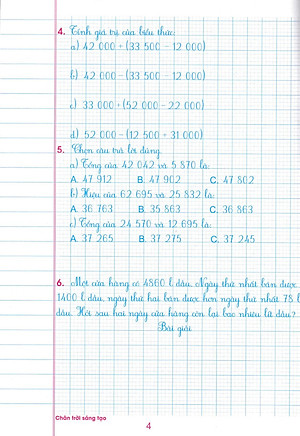 4. Tính giá trị của biểu thức:
a) 42 000 + (33 500 - 12 000)
b) 42 000 - (33 500 - 12 000)
c) 33 000 + (52 000 - 22 000)
d) 52 000 - (12 500 + 31 000)
5. Chọn câu trả lời đúng.
a) Tổng của 42 042 và 5 870 là:
A. 47 912 B. 47 902 C. 47 802
b) Hiệu của 62 695 và 25 832 là:
A. 36 763 B. 35 863 C. 36 863
c) Tổng của 24 570 và 12 695 là:
A. 37 265 B. 37 275 C. 37 245
6. Một cửa hàng có 4860 l dầu. Ngày thứ nhất bán được
1400 l dầu, ngày thứ hai bán được hơn ngày thứ nhất 78 l
dầu. Hỏi sau hai ngày cửa hàng còn lại bao nhiêu lít dầu?
Bài giải
Chân trời sáng tạo
4